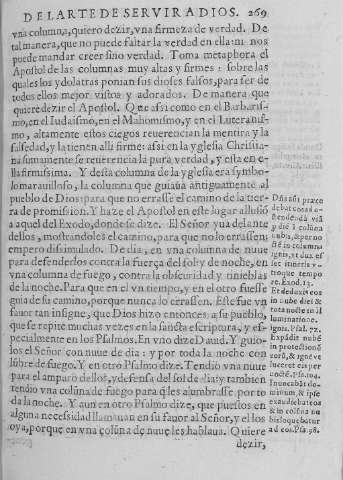 DEL ARTE DE SERVIR A DIOS. 269
vna columna, quiero dezir, vna firmeza de verdad. De
tal manera, que no puede faltar la verdad en ella: ni nos
puede mandar creer sino verdad. Toma metaphora el
Apostol de las columnas muy altas y firmes: sobre las
quales los ydolatras ponian sus dioses falsos, para ser de
todos ellos mejor vistos y adorados. De manera que
quiere dezir el Apostol. Que assi como en el Barbaris-
mo, en el Iudaismo, en el Mahomismo, y en el Luteranis-
mo, altamente estos ciegos reuerencian la mentira y la
falsedad, y la tienen alli firme: assi en la yglesia Christia-
na sumamente se reuerencia la pura verdad, y esta en e-
lla firmissima. Y desta columna de la yglesia era symbo-
lo marauilloso, la columna que guiaua antiguamente al
pueblo de Dios: para que no errasse el camino de la tier-
ra de promission. Y haze el Apostol en este lugar allusiō
a aquel del Exodo, donde se dize. El Señor yua delante
dellos, mostrandoles el camino, para que no lo errassen:
empero dissimulado. De dia, en vna columna de nuue
para defenderlos contra la fuerça del sol: y de noche, en
vna columna de fuego, contra la obscuridad y tinieblas
de la noche. Para que en el vn tiempo, y en el otro fuesse
guia de su camino, porque nunca lo errassen. Este fue vn
fauor tan insigne, que Dios hizo entonces a su pueblo,
que se repite muchas vezes en la sancta escriptura, y es-
pecialmente en los Psalmos. En vno dize Dauid. Y guio-
los el Señor con nuue de dia: y por toda la noche con
lūbre de fuego. Y en otro Psalmo dize. Tendio vna nuue
para el amparo dellos, y defensa del sol de dia: y tambien
tendio vna colūna de fuego para q̄ les alumbrasse por to
da la noche. Y aun en otro Psalmo dize, que puestos en
alguna necessidad llamauan en su fauor al Señor, y el los
oya, porque en vna colūna de nuue les hablaua. Quiere
dezir,
Dñs aūt præce
debat eos ad o-
stendendā viā
p diē ī colūna
nubis, & per no
ctē in columna
ignis, vt dux es
set itineris v-
troque tempo
re. Exod. 13.
Et deduxit eos
in nube diei &
tota nocte in il
luminatione.
ignis. Psa. 77.
Expādit nubē
in protectionē
eorū, & ignē vt
luceret eis per
noctē. Psa. 104.
Inuocabāt do-
minum, & ipse
exaudiebat eos
& in colūna nu
bis loquebatur
ad eos. Psa. 98.